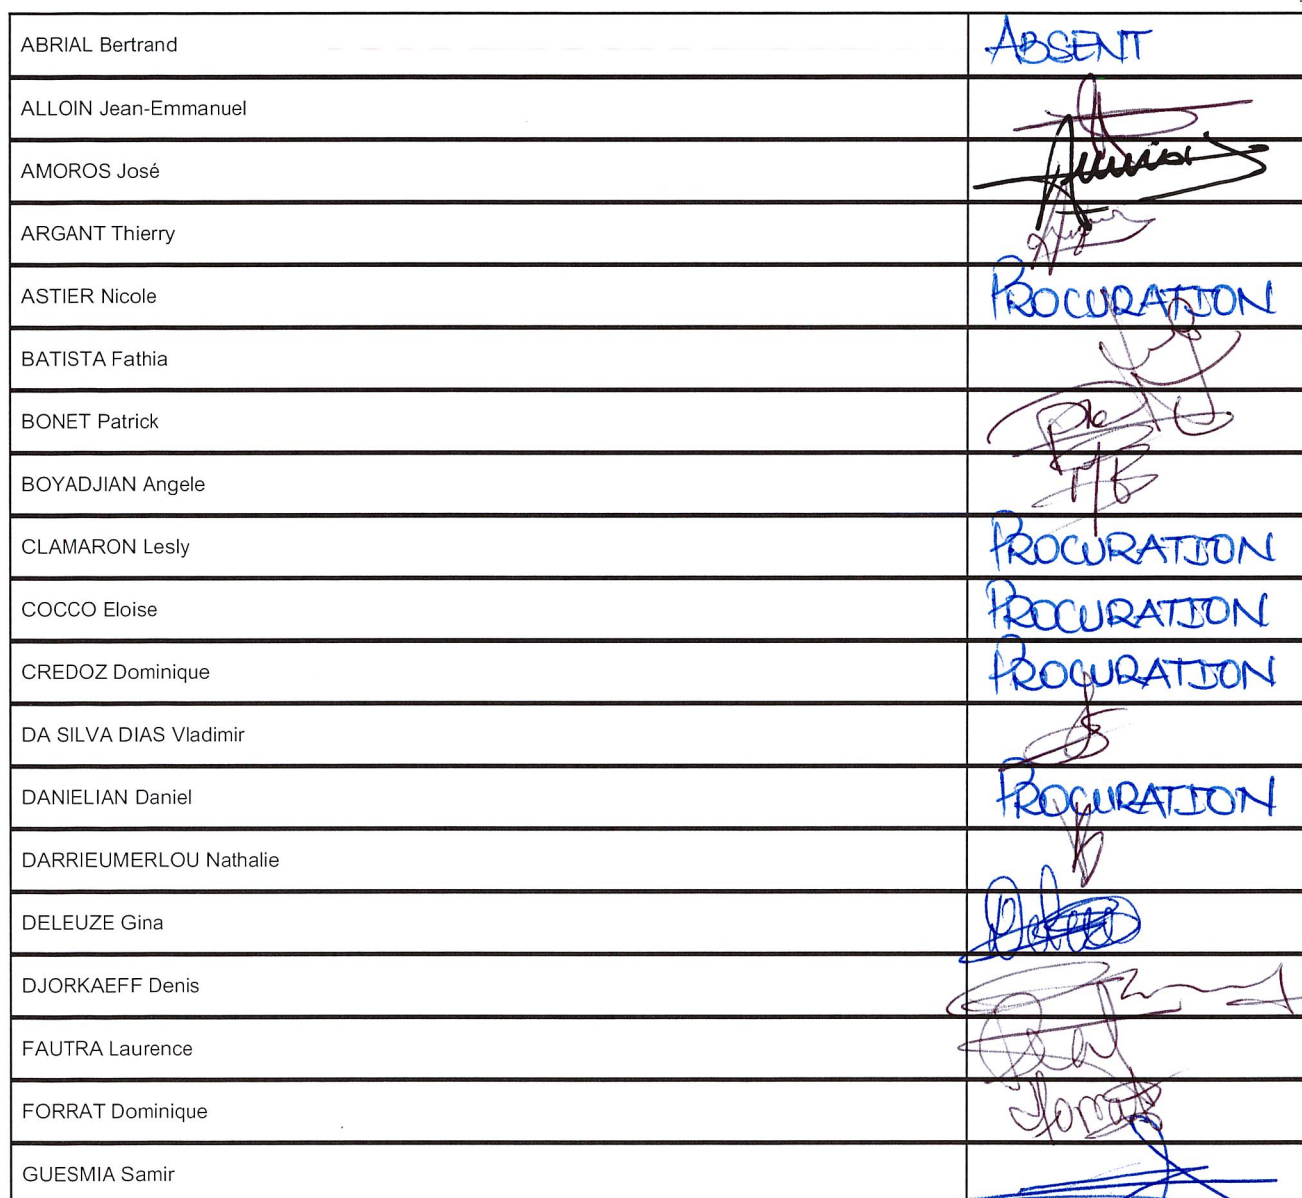 ABRIAL Bertrand ABSENT
ALLOIN Jean-Emmanuel
AMOROS José
ARGANT Thierry
ASTIER Nicole PROCURATION
BATISTA Fathia
BONET Patrick
BOYADJIAN Angele
CLAMARON Lesly PROCURATION
COCCO Eloise PROCURATION
CREDOZ Dominique PROCURATION
DA SILVA DIAS Vladimir
DANIELIAN Daniel PROCURATION
DARRIEUMERLOU Nathalie
DELEUZE Gina
DJORKAEFF Denis
FAUTRA Laurence
FORRAT Dominique
GUESMIA Samir